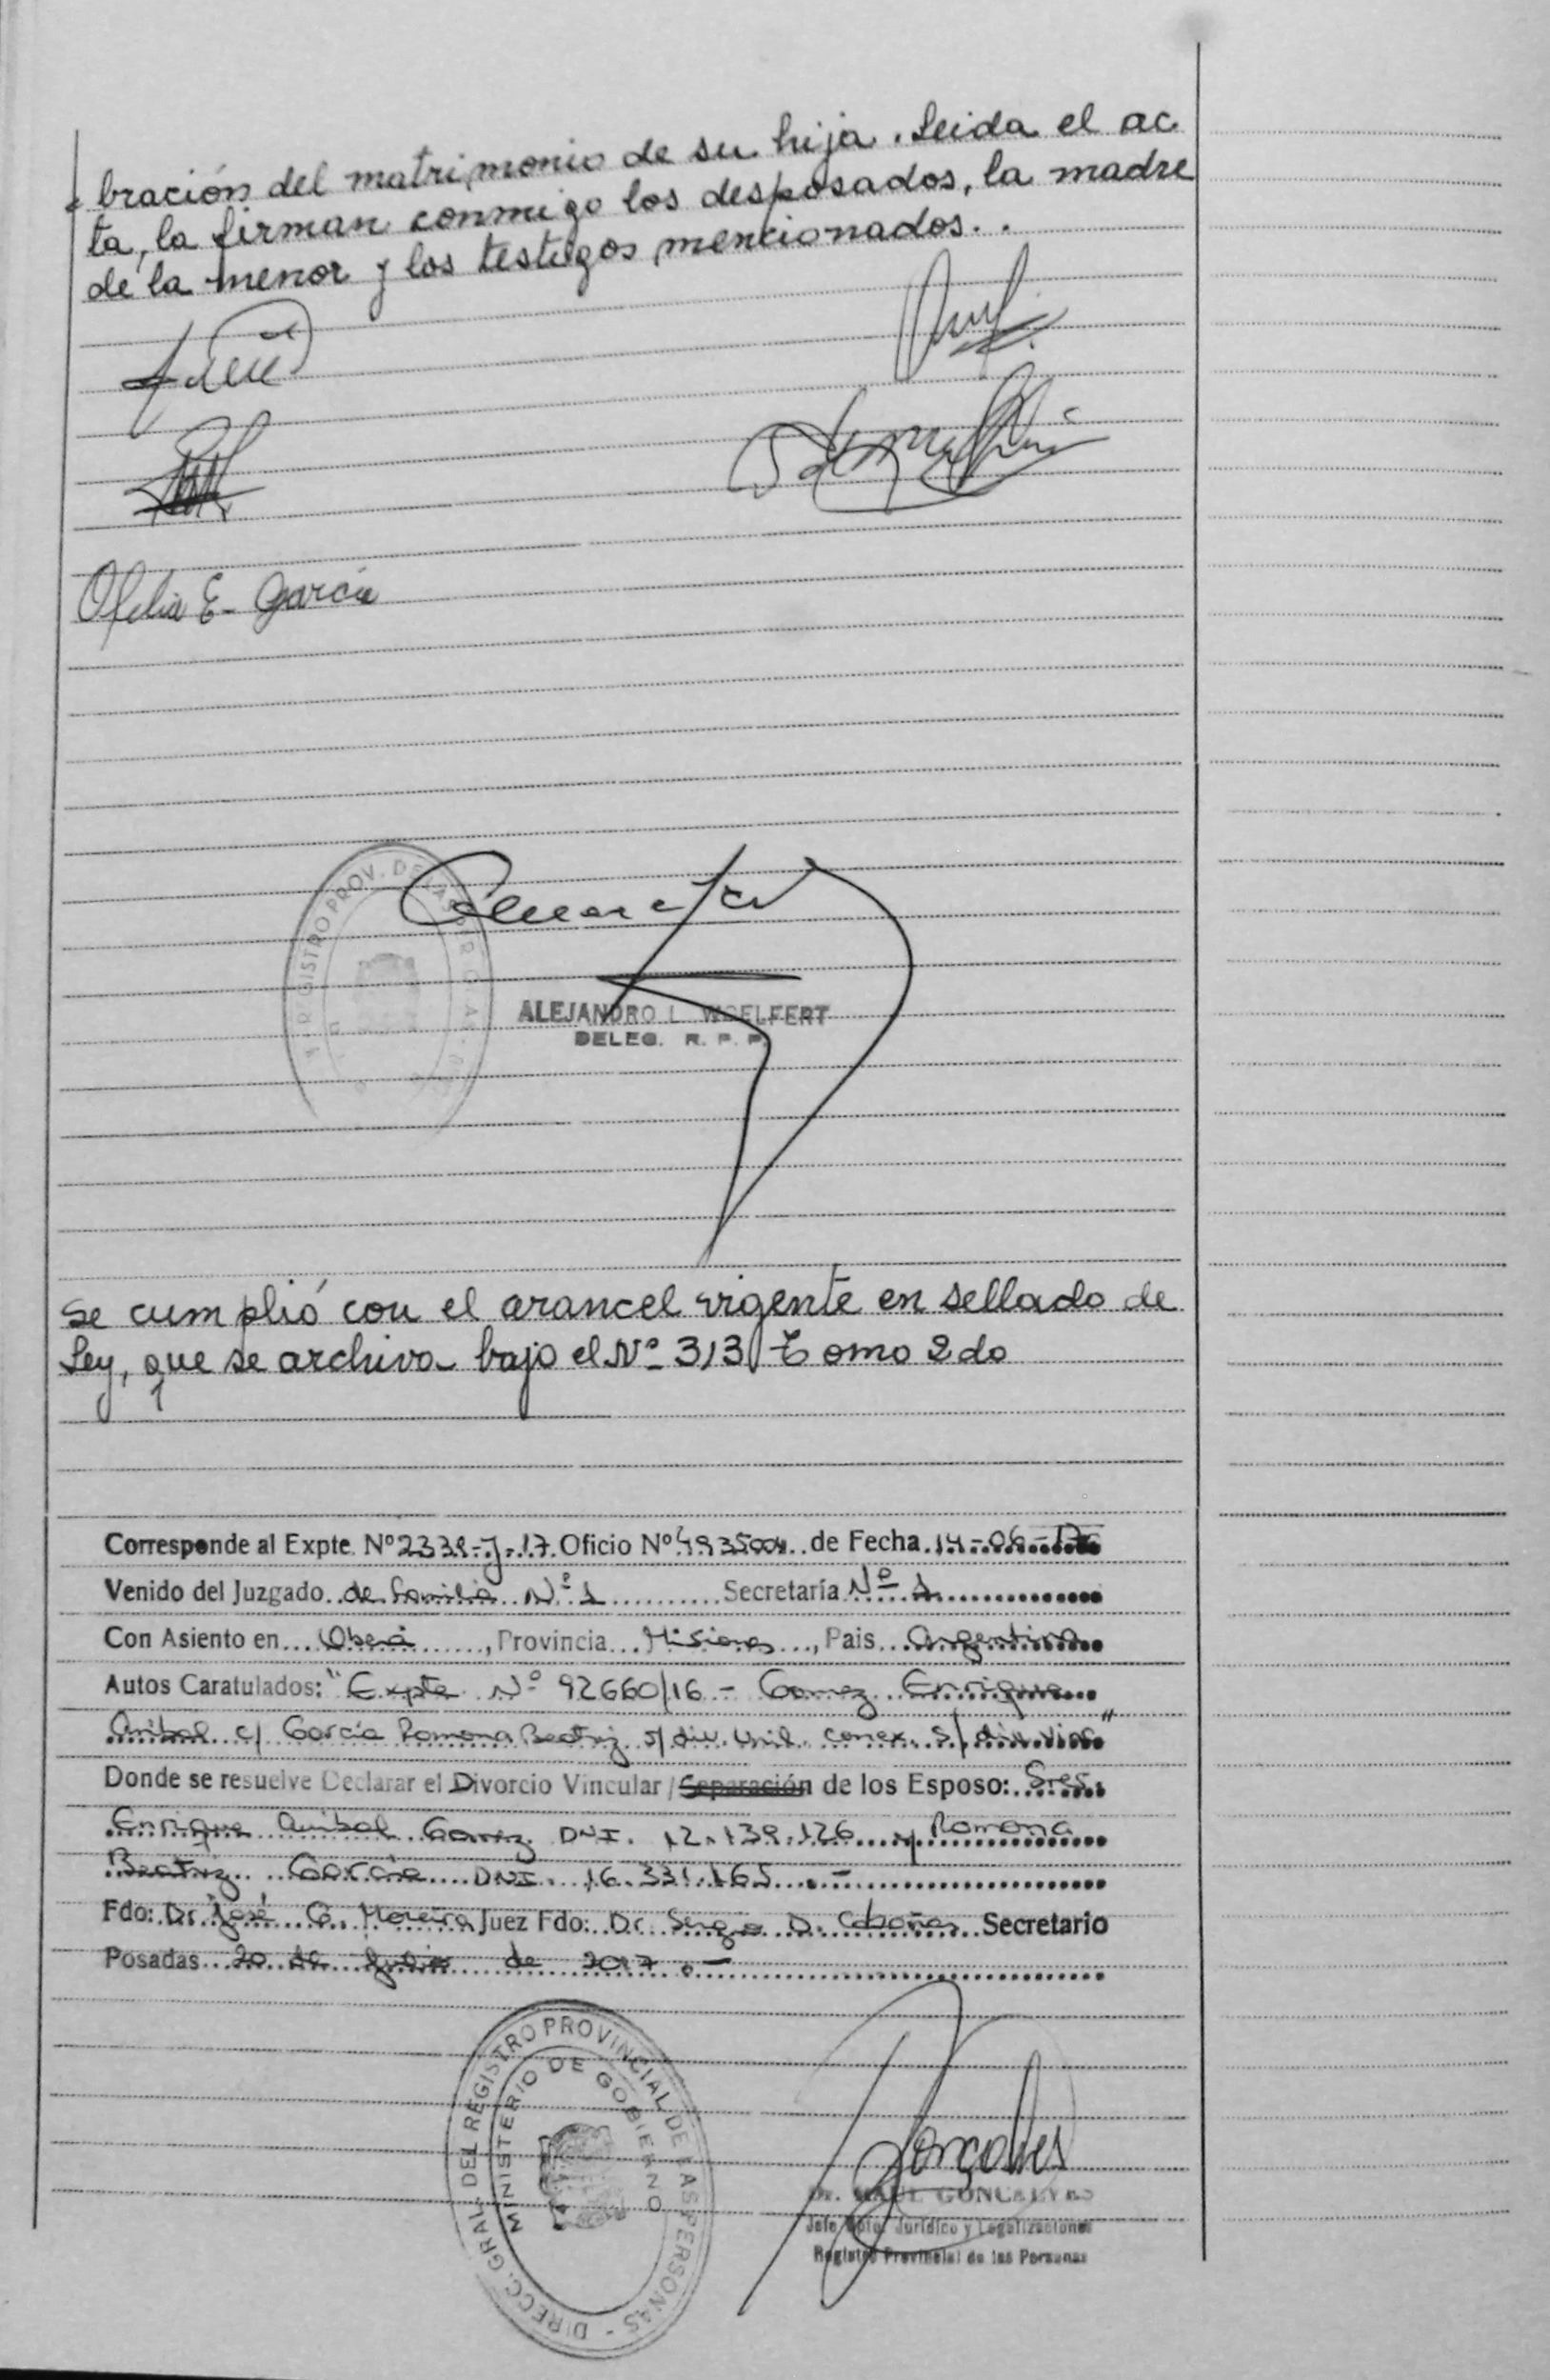 bración del matrimonio de su hija. Leida el ac
ta, la firman conmigo los desposados, la madre
de la menor y los testigos mencionados..
Ofelia E. Garcia
REGISTRO PROV. DE LAS PERSONAS
ALEJANDRO L. WOELFERT
DELEG. R. P. P.
Se cumplió con el arancel vigente en sellado de
Ley, que se archiva bajo el Nº 313 Tomo 2do
Corresponde al Expte. Nº 2338-J-17. Oficio Nº de Fecha 14-06-17
Venido del Juzgado de Familia Nº 1 Secretaría Nº 1
Con Asiento en Oberá, Provincia Misiones, Pais Argentina
Autos Caratulados: "Expte Nº 92660/16 - Gomez Enrique
Anibal c/ Garcia Ramona Beatriz s/ div. Unil. conex. s/ div. Vinc"
Donde se resuelve Declarar el Divorcio Vincular / Separación de los Esposo: Sres.
Enrique Anibal Gomez DNI. 12.139.126 y Ramona
Beatriz Garcia DNI 16.331.165.-
Fdo: Dr. José G. Moreira Juez Fdo: Dr. Sergio D. Cabañas Secretario
Posadas 20 de Julio de 2017.-
DIRECC. GRAL. DEL REGISTRO PROVINCIAL DE LAS PERSONAS -
MINISTERIO DE GOBIERNO
Dr. RAUL GONCALVES
Jefe Dpto. Jurídico y Legalizaciones
Registro Provincial de las Personas